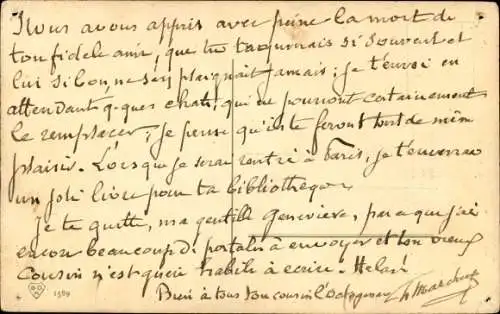 Nous avons appris avec peine la mort de
ton fidèle ami, que tu taquinais si souvent et
lui si bon, ne s'en plaignait jamais; je t'envoi en
attendant q-ques chats, qui ne pourront certainement
le remplacer; je pense qu'ils te feront tout de même
plaisir. Lorsque je serai rentré à Paris, je t'enverrai
un joli livre pour ta bibliothèque.
Je te quitte, ma gentille Geneviève, parce que j'ai
encore beaucoup de à envoyer et ton vieux
Cousin n'est guère habile à écrire. Hélas!
Bien à tous ton cousin l'Octogénaire
1569